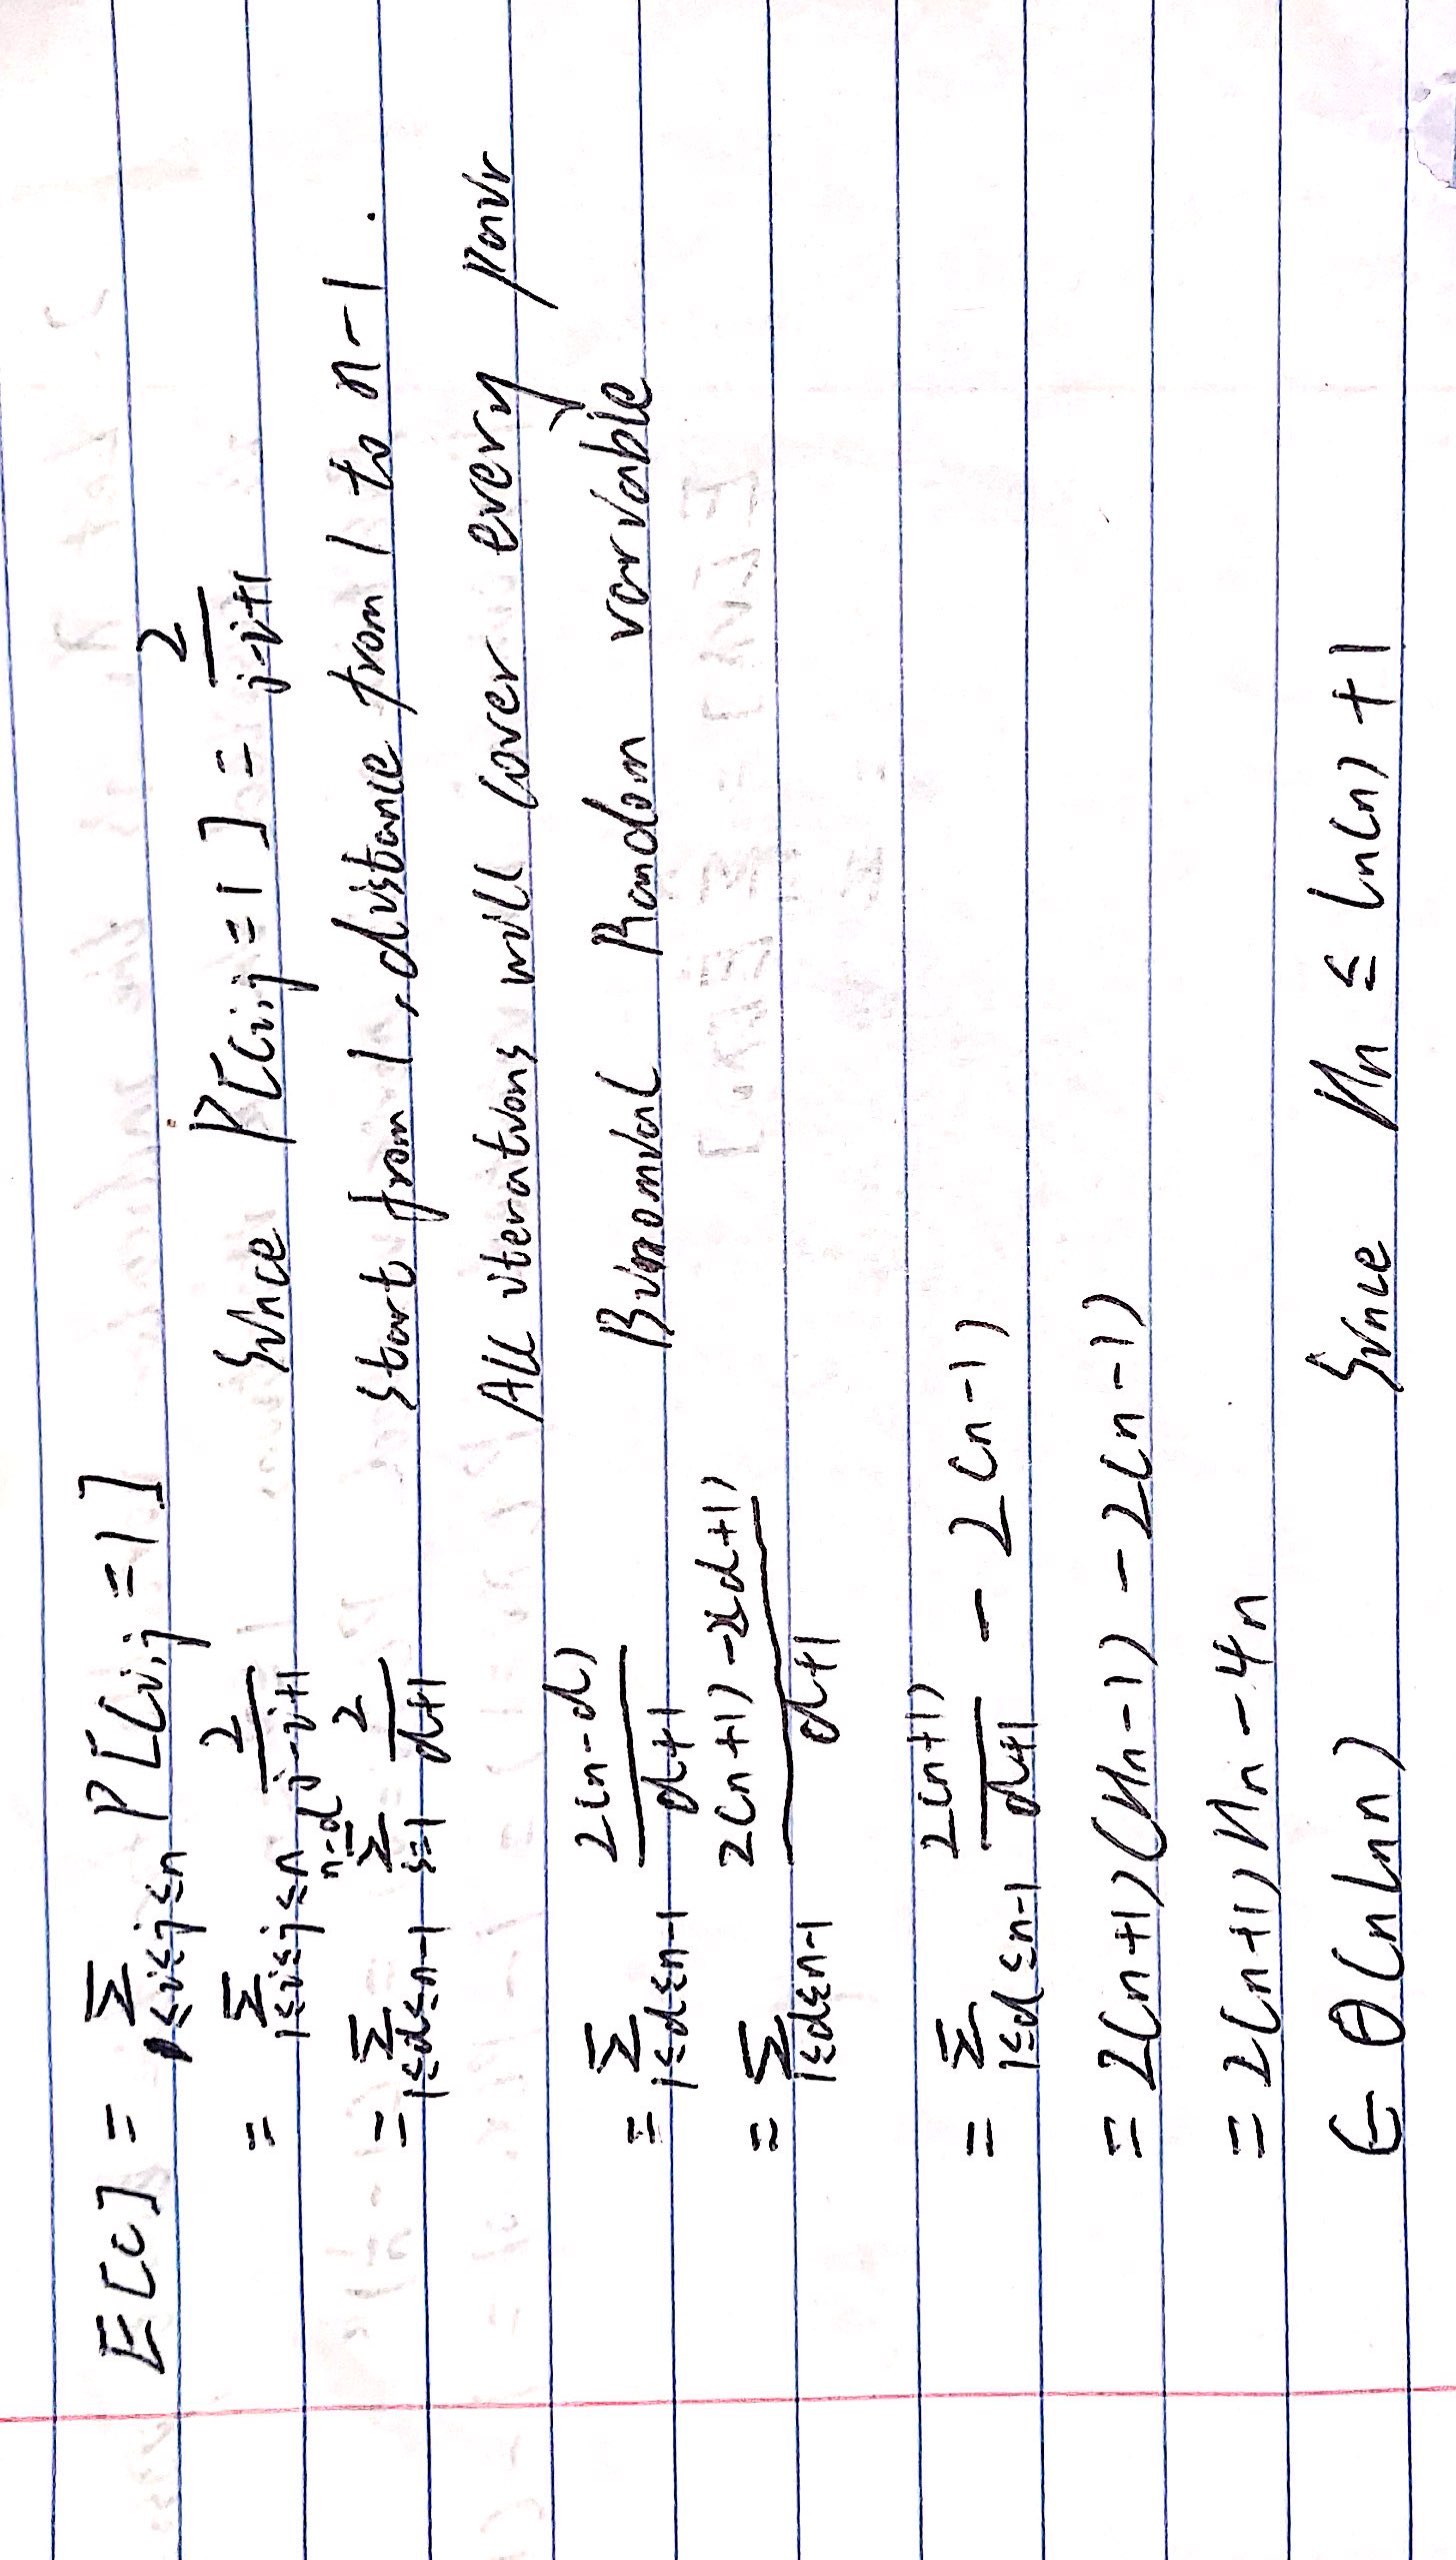 E[C] = Σ 1≤i≤j≤n P[Ci,j = 1]
= Σ 1≤i≤j≤n 2/(j-i+1) Since P[Ci,j = 1] = 2/(j-i+1)
= Σ 1≤d≤n-1 Σ s=1 n-d 2/(d+1) start from 1, distance from 1 to n-1.
All iterations will cover every pair
= Σ 1≤d≤n-1 2(n-d)/(d+1) Binomial Random variable
= Σ 1≤d≤n-1 (2(n+1)-2(d+1))/(d+1)
= Σ 1≤d≤n-1 2(n+1)/(d+1) - 2(n-1)
= 2(n+1)(Hn-1) - 2(n-1)
= 2(n+1)Hn - 4n
∈ Θ(n ln n) Since Hn ≤ ln(n) + 1